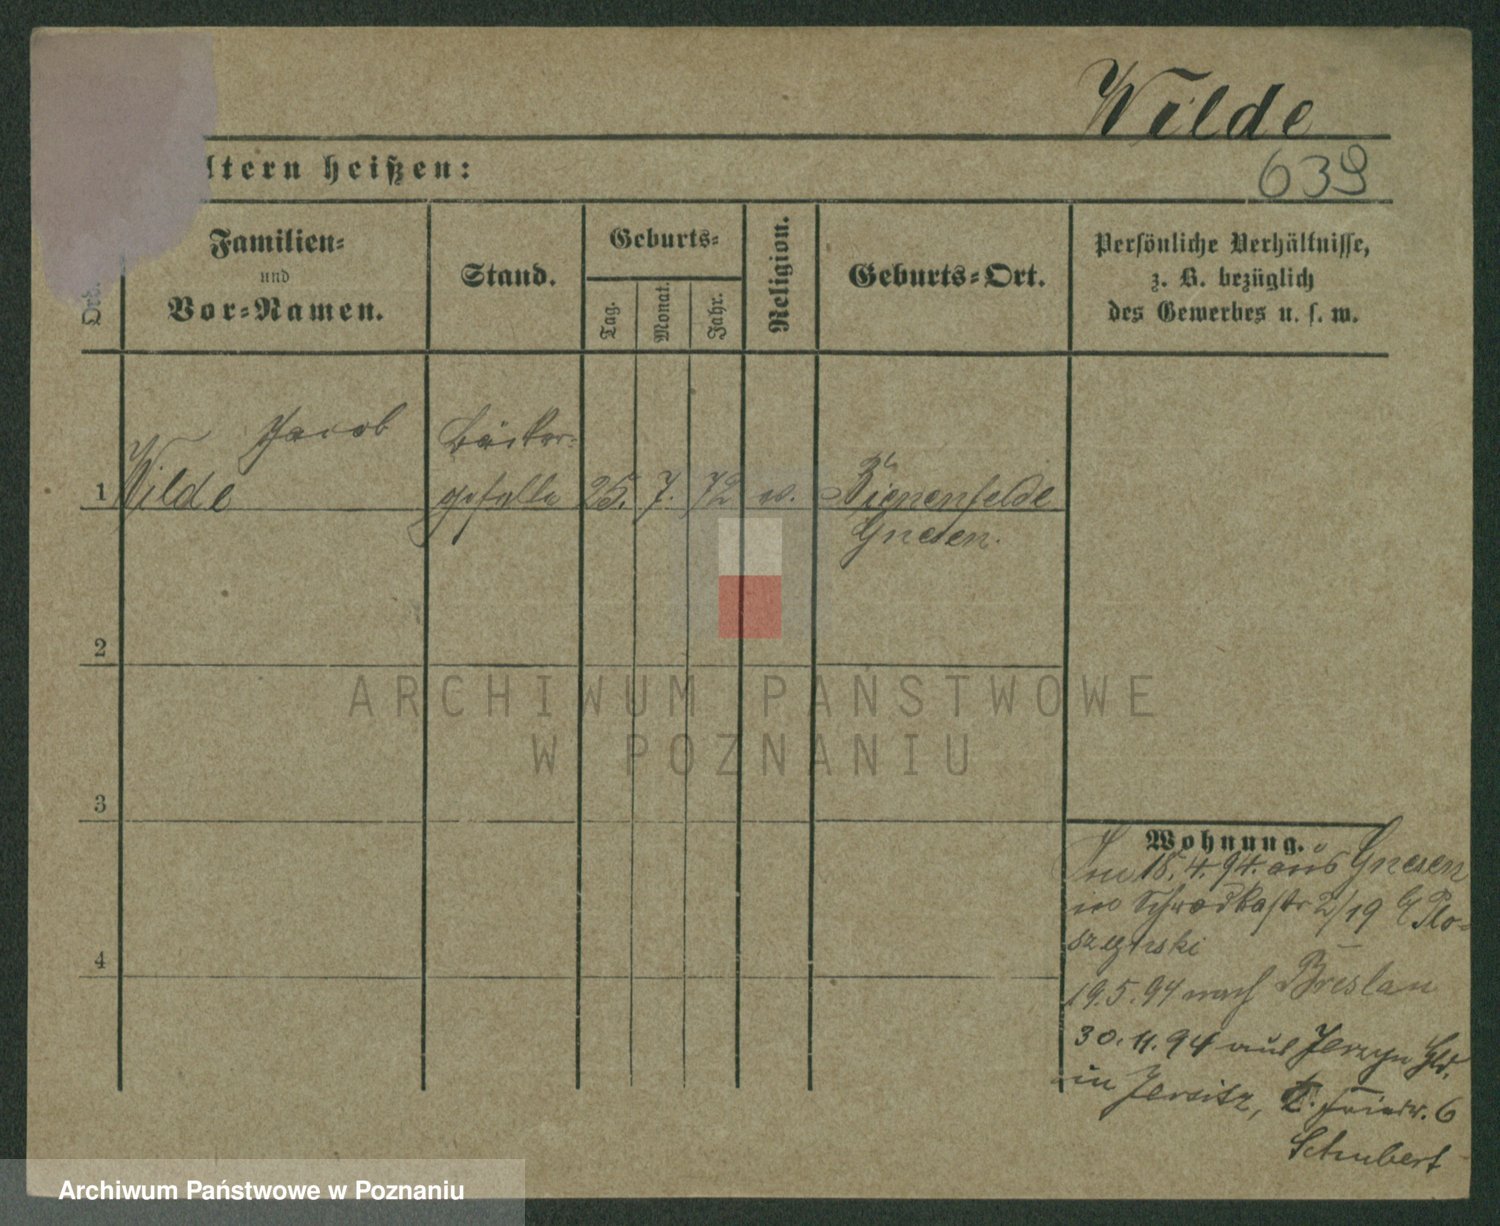 Wilde
ltern heißen:
639
Ord.
Familien-
und
Vor-Namen.
Stand.
Geburts-
Tag.
Monat.
Jahr.
Religion.
Geburts-Ort.
Persönliche Verhältnisse,
z. B. bezüglich
des Gewerbes u. s. w.
Jacob
Bäcker-
1 Wilde geselle 25. 7. 72 ev. Bienenfelde
Gnesen.
2
ARCHIWUM PANSTWOWE
W POZNANIU
3
Wohnung.
18. 4. 94. aus Gnesen
in Schrodkastr 2/19 Plo-
szynski
19.5.94 nach Breslau
30.11.94 aus Jerzyn
4
in Jersitz, 6
Schubert
Archiwum Państwowe w Poznaniu